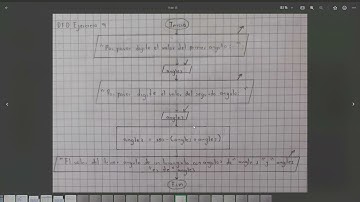 DFD Ejercicio 9
Inicio
"Por favor digite el valor del primer angulo"
angulo1
"Por favor digite el valor del segundo angulo"
angulo2
angulo3 = 180 - (angulo1 + angulo2)
"El valor del tercer angulo de un triangulo con angulos de" angulo1 "y" angulo2
"es de" angulo3
Fin